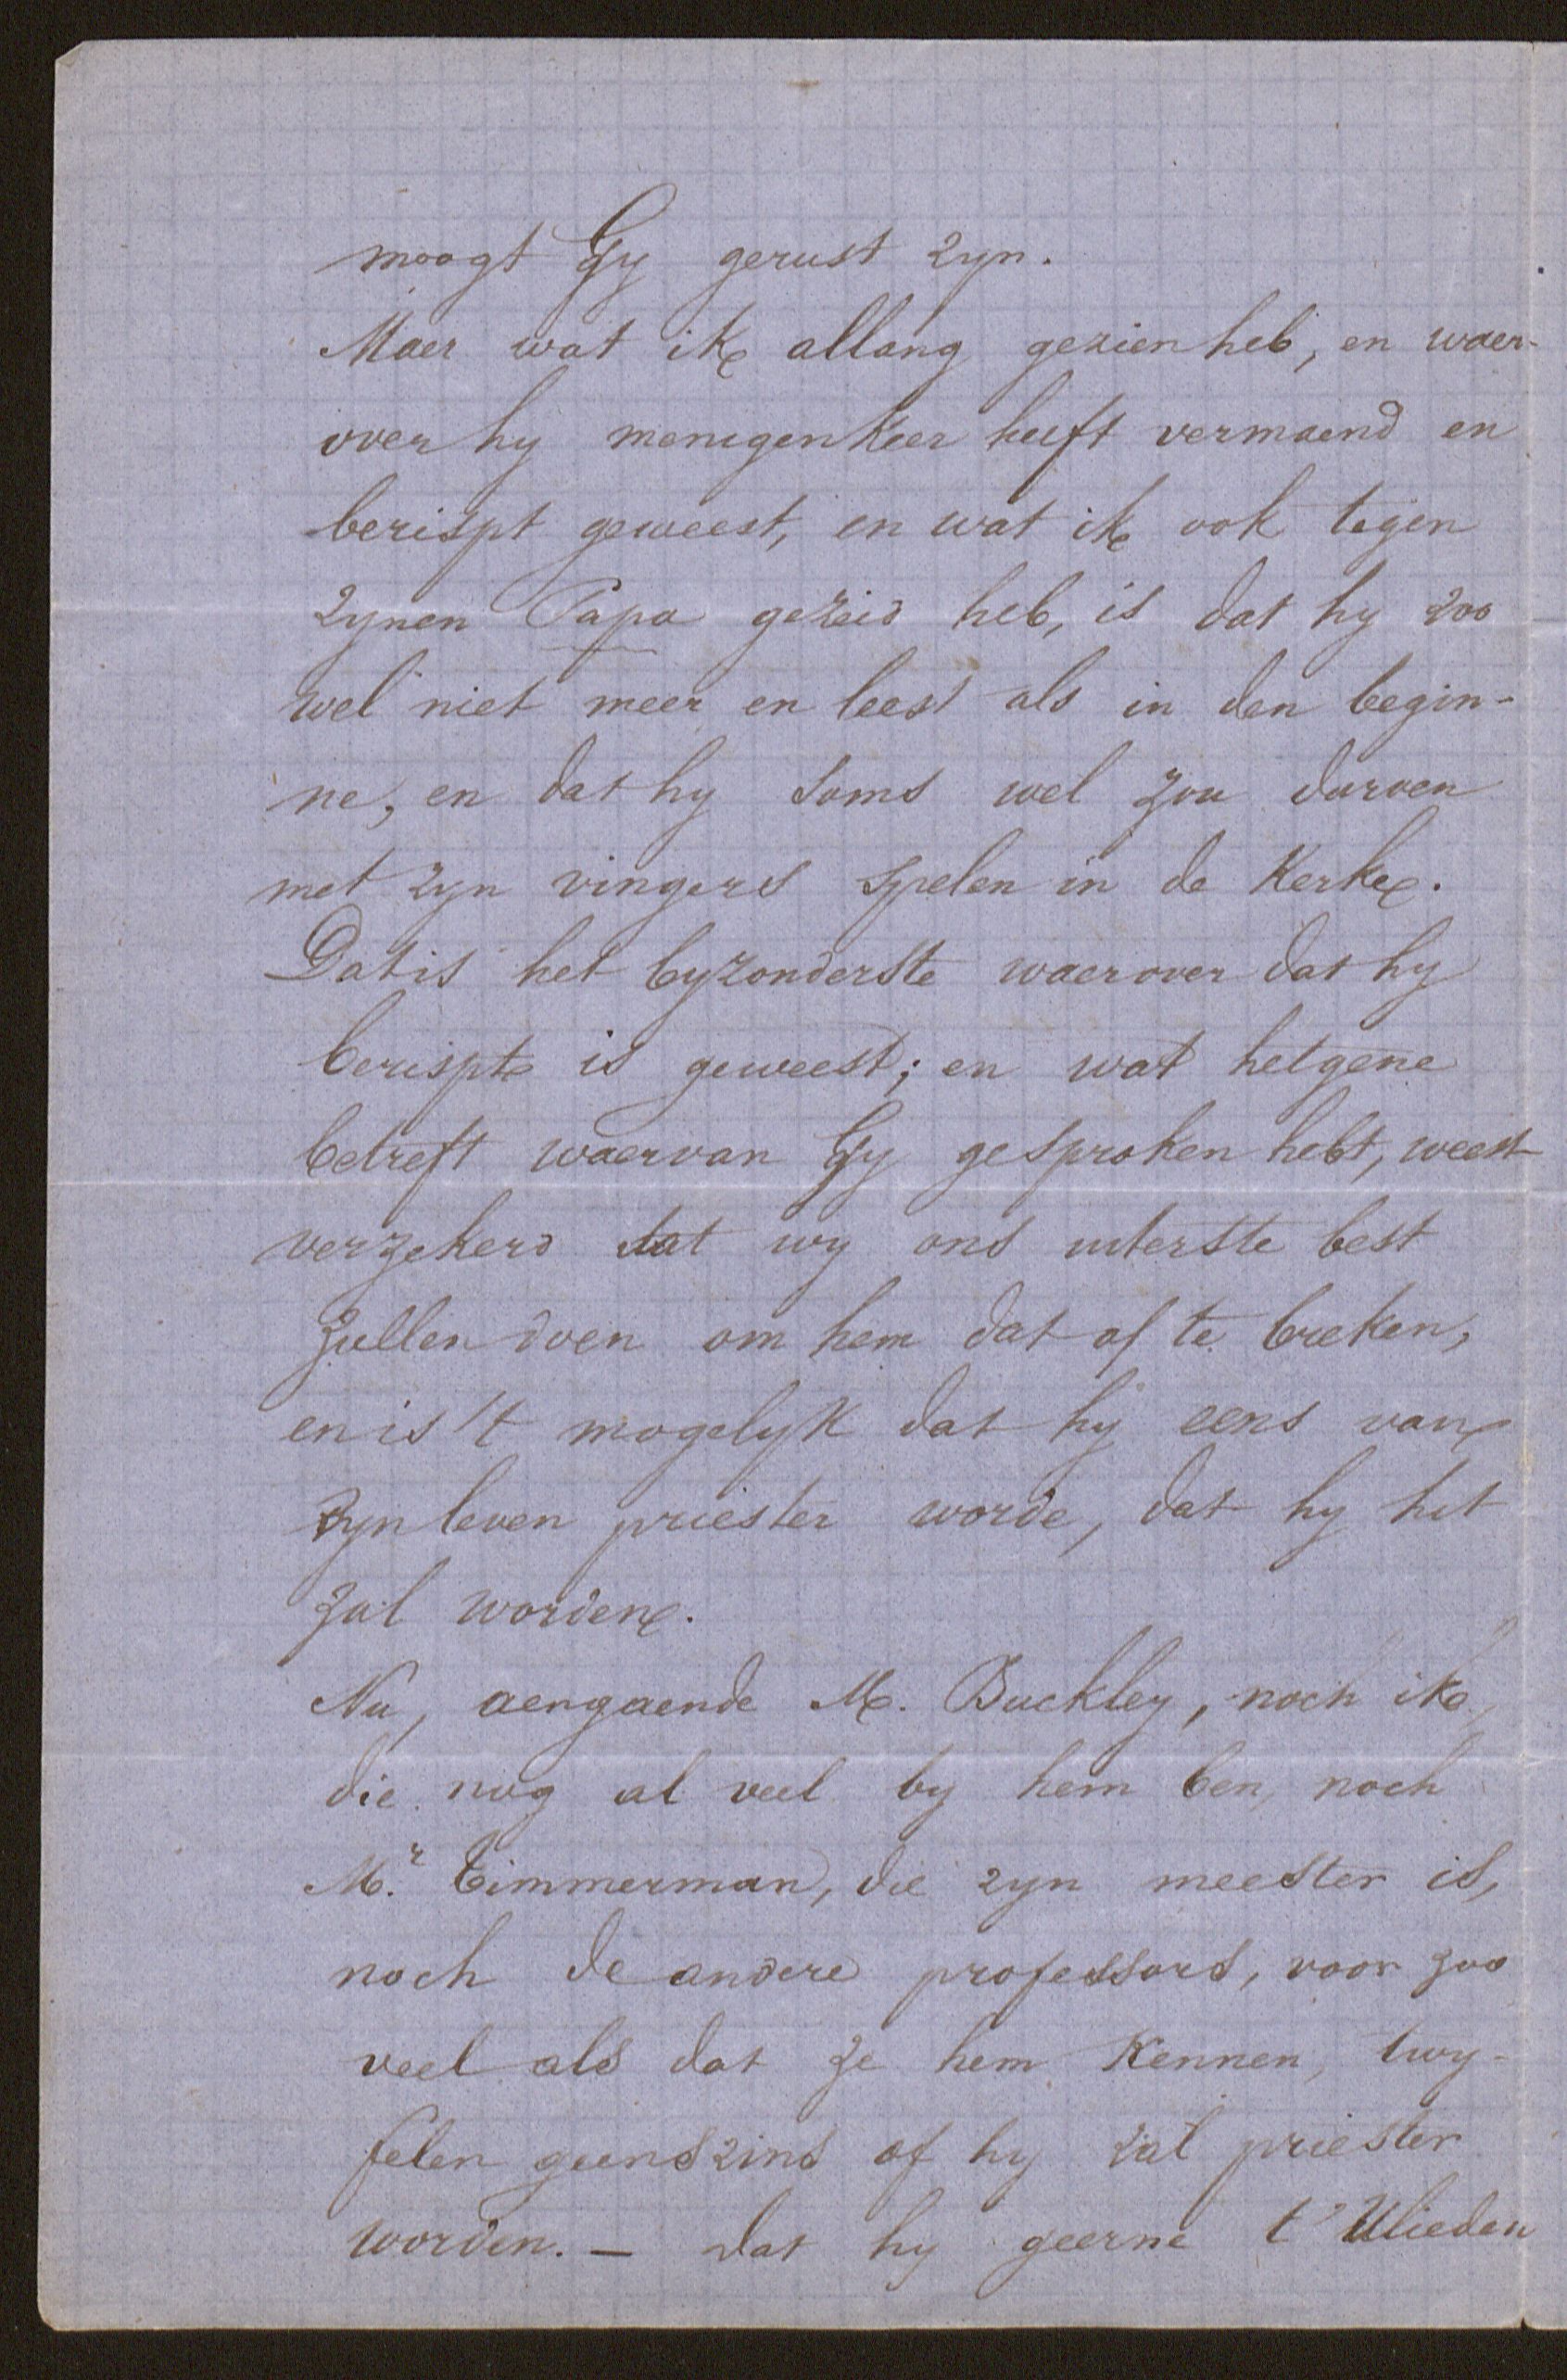 moogt Gy gerust zyn.
Maer wat ik allang gezien heb, en waer-
over hy menigen keer heeft vermaend en
berispt geweest, en wat ik ook tegen
zynen Papa gezeid heb, is dat hy zoo
wel niet meer en leest als in den begin-
ne, en dat hy soms wel zou durven
met zyn vingers spelen in de Kerke.
Dat is het byzonderste waerover dat hy
berispt is geweest; en wat hetgene
betreft waervan Gy gesproken hebt, weest
verzekerd dat wy ons uiterste best
zullen doen om hem dat af te breken,
en is 't mogelyk dat hy eens van
zyn leven priester worde, dat hy het
zal worden.
Nu, aengaende M. Buckley, noch ik,
die nog al veel by hem ben, noch
Mr. Timmerman, die zyn meester is,
noch de andere professors, voor zoo
veel als dat ze hem kennen, twy-
felen geenszins of hy zal priester
worden. — Dat hy geerne t' Ulieden